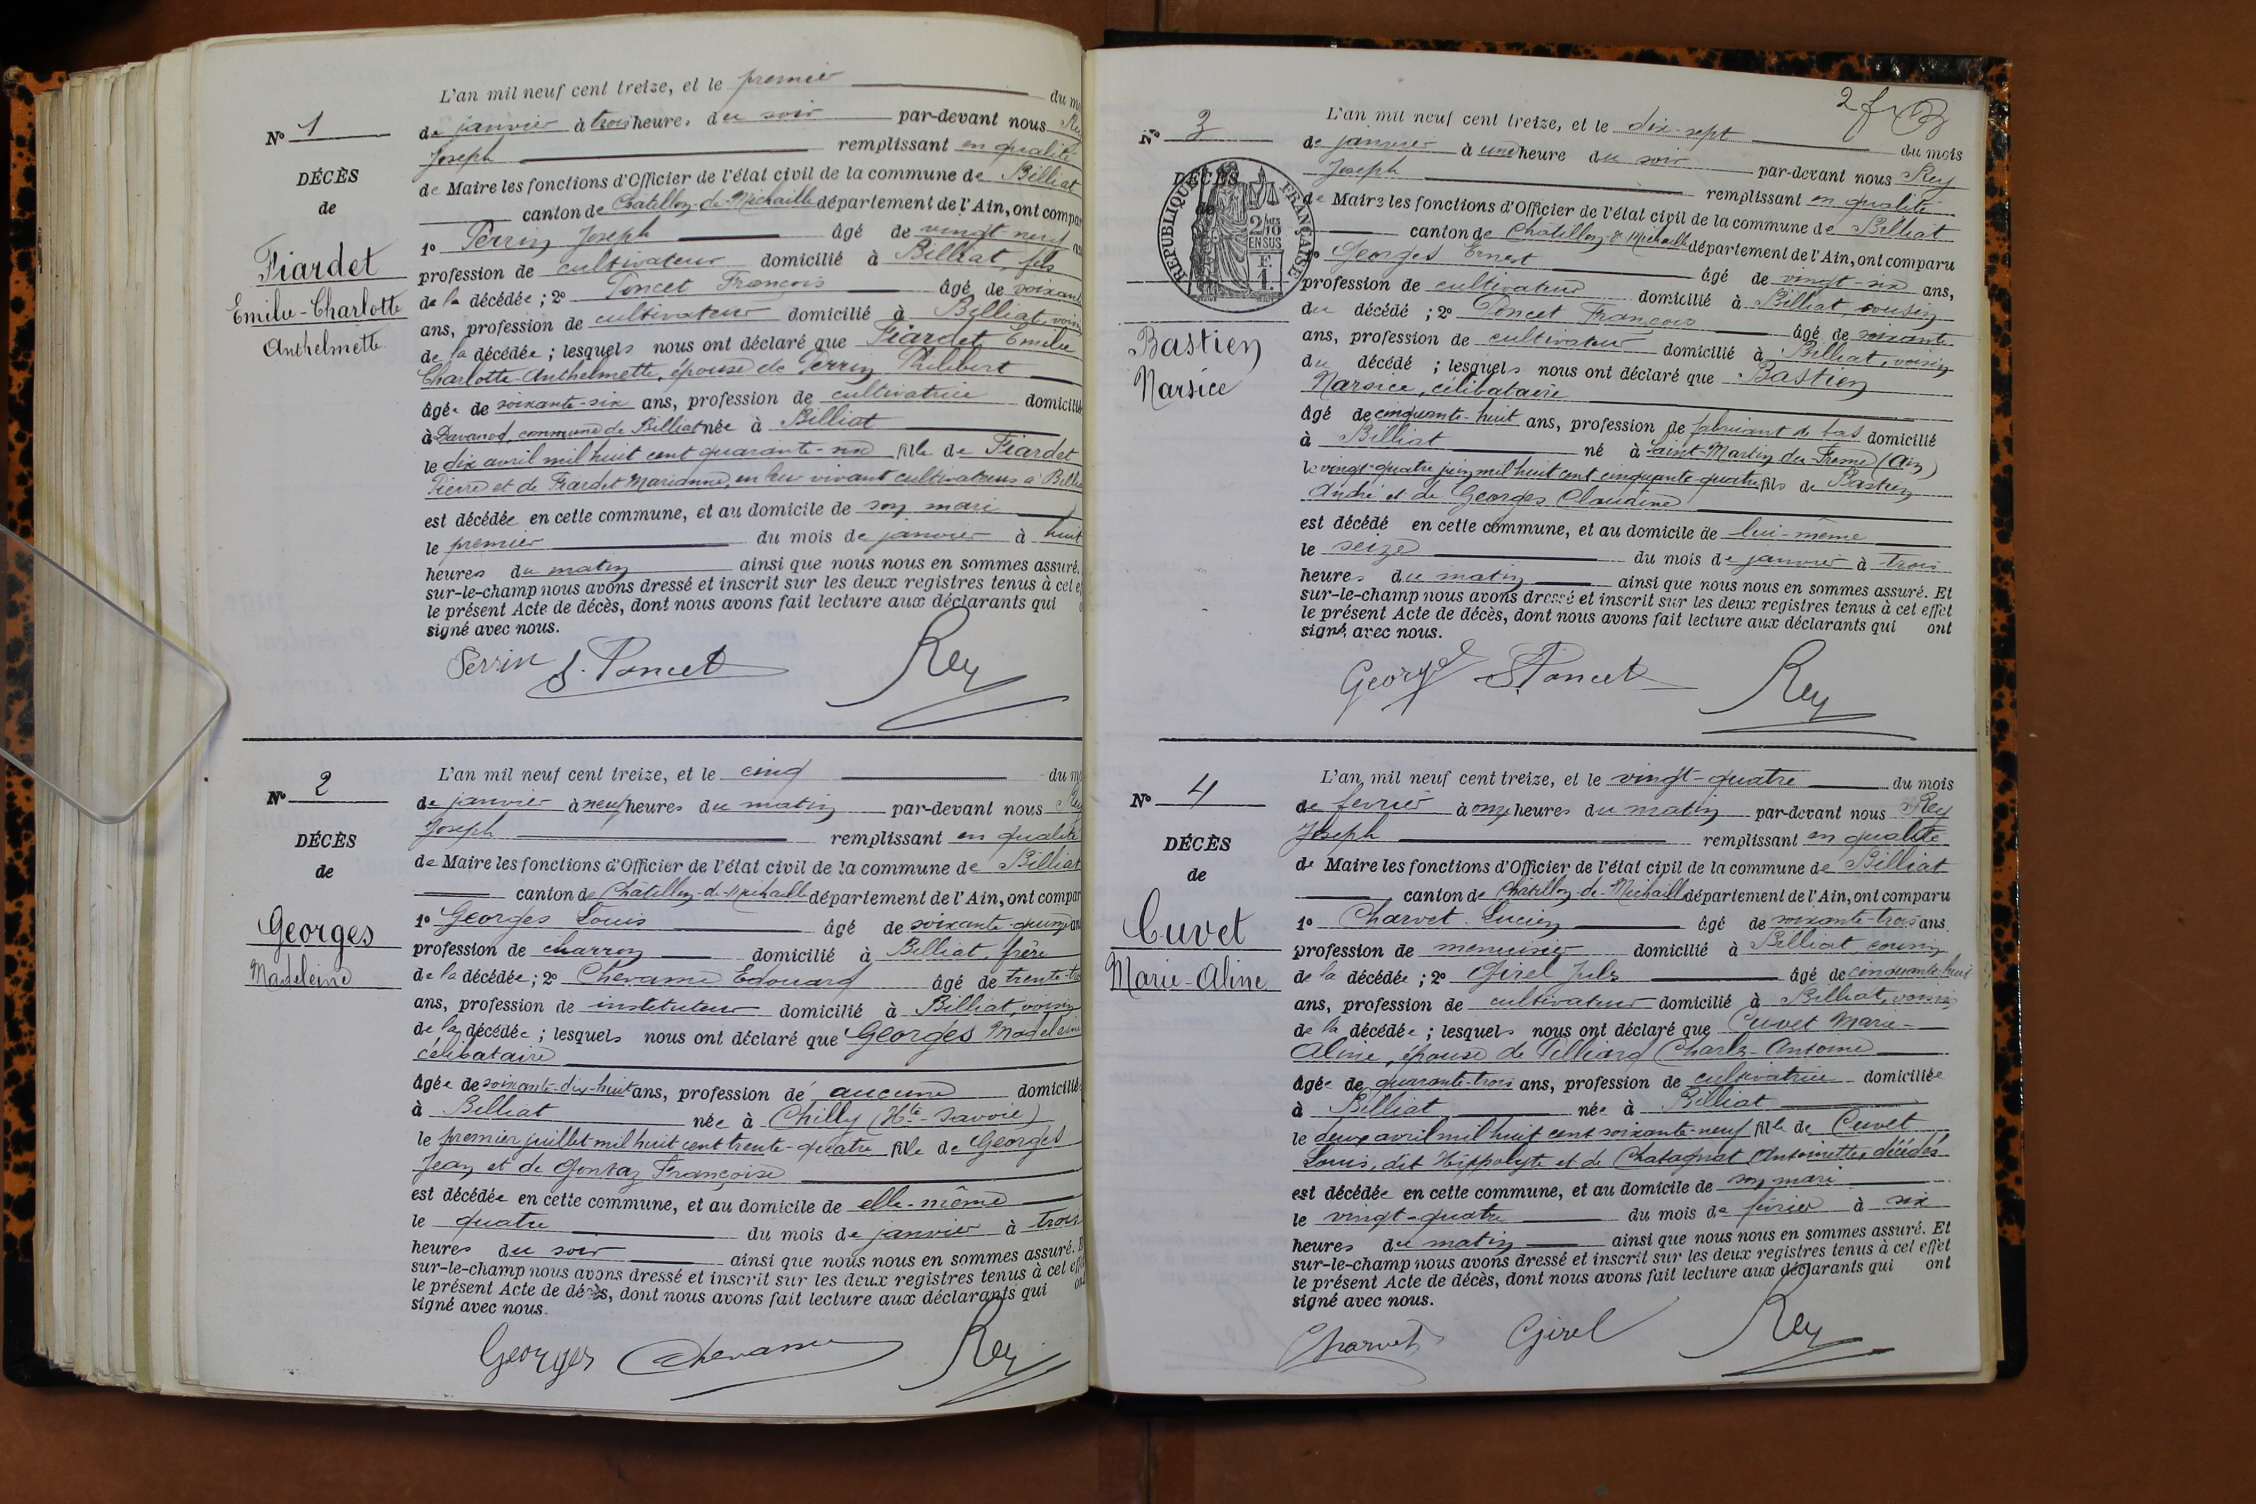 N° 1
DÉCÈS
de
Fiardet
Emilie-Charlotte
Anthelmette
L'an mil neuf cent treize, et le premier du m
de janvier à trois heures du soir par-devant nous Rey
Joseph remplissant en qualité
de Maire les fonctions d'Officier de l'état civil de la commune de Billiat
canton de Chatillon-de-Michaille département de l'Ain, ont compar
1° Perrin Joseph âgé de vingt-neuf an
profession de cultivateur domicilié à Billiat, fils
de la décédée ; 2° Poncet François âgé de soixante
ans, profession de cultivateur domicilié à Billiat, voisin
de la décédée ; lesquels nous ont déclaré que Fiardet Emilie
Charlotte-Anthelmette, épouse de Perrin Philibert
âgée de soixante-six ans, profession de cultivatrice domiciliée
à Davanod, commune de Billiat née à Billiat
le dix avril mil huit cent quarante-six fille de Fiardet
Pierre et de Fiardet Marianne, en leur vivant cultivateurs à Billia
est décédée en cette commune, et au domicile de son mari
le premier du mois de janvier à huit
heures du matin ainsi que nous nous en sommes assuré.
sur-le-champ nous avons dressé et inscrit sur les deux registres tenus à cet ef
le présent Acte de décès, dont nous avons fait lecture aux déclarants qui o
signé avec nous.
Perrin F. Poncet Rey
N° 2
DÉCÈS
de
Georges
Madeleine
L'an mil neuf cent treize, et le cinq du mo
de janvier à neuf heures du matin par-devant nous Rey
Joseph remplissant en qualité
de Maire les fonctions d'Officier de l'état civil de la commune de Billiat
canton de Chatillon-de-Michaille département de l'Ain, ont compar
1° Georges Louis âgé de soixante-quinze an
profession de charron domicilié à Billiat, frère
de la décédée ; 2° Chevame Edouard âgé de trente-
ans, profession de instituteur domicilié à Billiat, voisin
de la décédée ; lesquels nous ont déclaré que Georges Madeleine
célibataire
âgée de soixante-dix-huit ans, profession de aucune domiciliée
à Billiat née à Chilly (Hte-Savoie)
le premier juillet mil huit cent trente-quatre fille de Georges
Jean et de Gonraz Françoise
est décédée en cette commune, et au domicile de elle-même
le quatre du mois de janvier à trois
heures du soir ainsi que nous nous en sommes assuré. E
sur-le-champ nous avons dressé et inscrit sur les deux registres tenus à cet eff
le présent Acte de décès, dont nous avons fait lecture aux déclarants qui on
signé avec nous.
Georges Chevame Rey
2 f
N° 3
DÉCÈS
de
RÉPUBLIQUE FRANÇAISE
2/10
EN SUS
F.
1.
Bastien
Narsice
L'an mil neuf cent treize, et le dix-sept du mois
de janvier à une heure du soir par-devant nous Rey
Joseph remplissant en qualité
de Maire les fonctions d'Officier de l'état civil de la commune de Billiat
canton de Chatillon-de-Michaille département de l'Ain, ont comparu
1° Georges Ernest âgé de vingt-six ans,
profession de cultivateur domicilié à Billiat, cousin
du décédé ; 2° Poncet François âgé de soixante
ans, profession de cultivateur domicilié à Billiat, voisin
du décédé ; lesquels nous ont déclaré que Bastien
Narsice, célibataire
âgé de cinquante-huit ans, profession de fabricant de bas domicilié
à Billiat né à Saint-Martin du Fresne (Ain)
le vingt-quatre juin mil huit cent cinquante-quatre fils de Bastien
André et de Georges Claudine
est décédé en cette commune, et au domicile de lui-même
le seize du mois de janvier à trois
heures du matin ainsi que nous nous en sommes assuré. Et
sur-le-champ nous avons dressé et inscrit sur les deux registres tenus à cet effet
le présent Acte de décès, dont nous avons fait lecture aux déclarants qui ont
signé avec nous.
Georges F. Poncet Rey
N° 4
DÉCÈS
de
Cuvet
Marie-Aline
L'an mil neuf cent treize, et le vingt-quatre du mois
de fevrier à onze heures du matin par-devant nous Rey
Joseph remplissant en qualité
de Maire les fonctions d'Officier de l'état civil de la commune de Billiat
canton de Chatillon-de-Michaille département de l'Ain, ont comparu
1° Charvet Lucien âgé de soixante-trois ans
profession de menuisier domicilié à Billiat, cousin
de la décédée ; 2° Girel Jules âgé de cinquante-huit
ans, profession de cultivateur domicilié à Billiat, voisin
de la décédée ; lesquels nous ont déclaré que Cuvet Marie-
Aline, épouse de Charles-Antoine
âgée de quarante-trois ans, profession de cultivatrice domiciliée
à Billiat née à Billiat
le deux avril mil huit cent soixante-neuf fille de Cuvet
Louis, dit Hippolyte et de Chatagnat Antoinette, décédés
est décédée en cette commune, et au domicile de son mari
le vingt-quatre du mois de février à six
heures du matin ainsi que nous nous en sommes assuré. Et
sur-le-champ nous avons dressé et inscrit sur les deux registres tenus à cet effet
le présent Acte de décès, dont nous avons fait lecture aux déclarants qui ont
signé avec nous.
Charvet Girel Rey